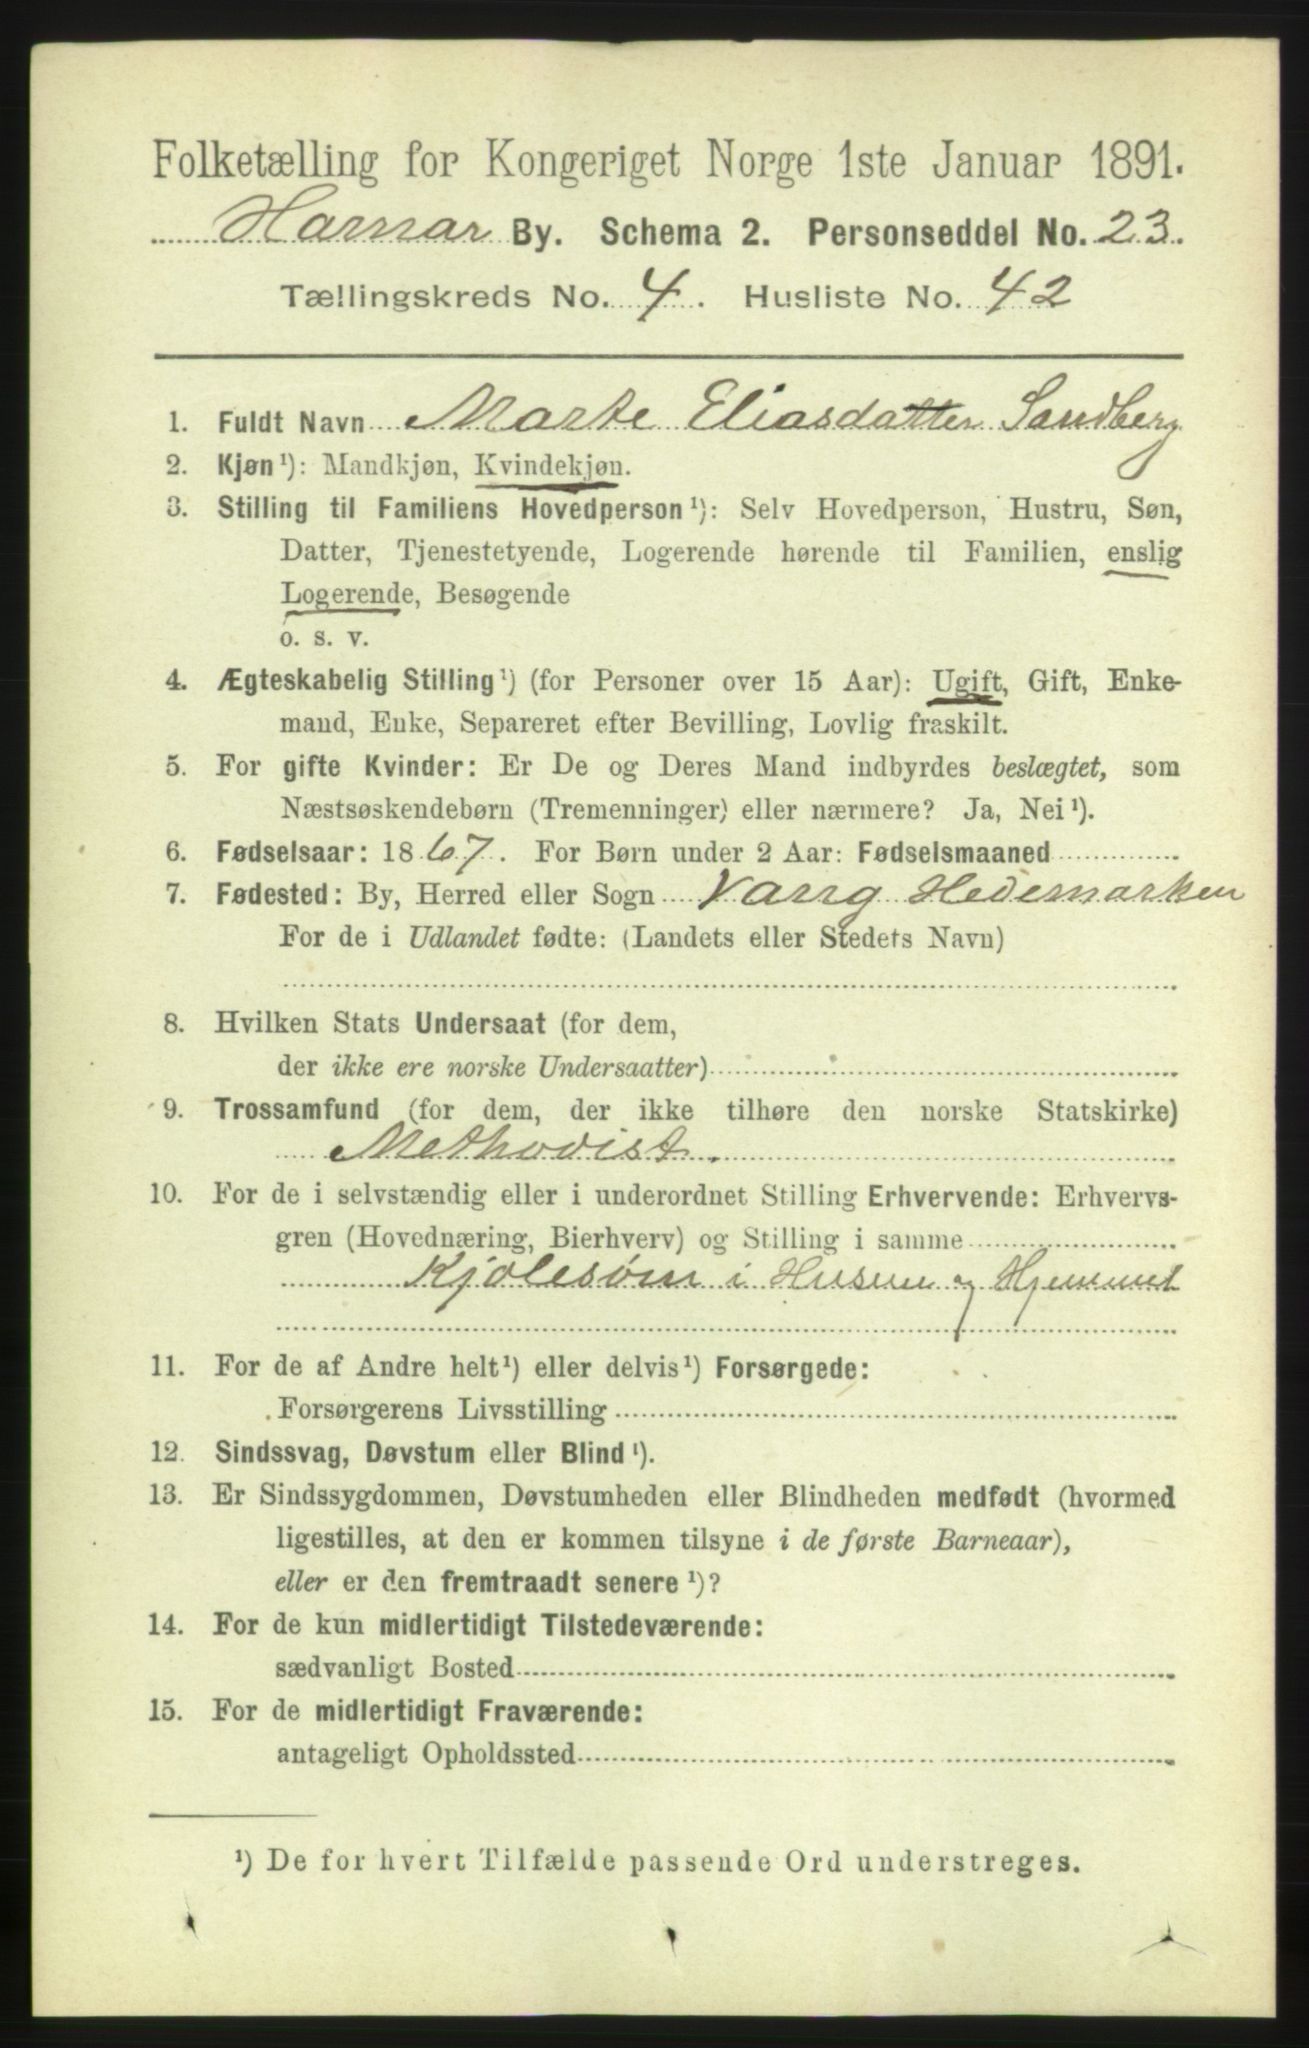 Folketælling for Kongeriget Norge 1ste Januar 1891.
Hamar By. Schema 2. Personseddel No. 23.
Tællingskreds No. 4. Husliste No. 42
1. Fuldt Navn Marte Eliasdatter Sandberg
2. Kjøn¹): Mandkjøn, Kvindekjøn.
3. Stilling til Familiens Hovedperson¹): Selv Hovedperson, Hustru, Søn,
Datter, Tjenestetyende, Logerende hørende til Familien, enslig
Logerende, Besøgende
o. s. v.
4. Ægteskabelig Stilling¹) (for Personer over 15 Aar): Ugift, Gift, Enke-
mand, Enke, Separeret efter Bevilling, Lovlig fraskilt.
5. For gifte Kvinder: Er De og Deres Mand indbyrdes beslægtet, som
Næstsøskendebørn (Tremenninger) eller nærmere? Ja, Nei¹).
6. Fødselsaar: 1867. For Børn under 2 Aar: Fødselsmaaned
7. Fødested: By, Herred eller Sogn Vang Hedemarken
For de i Udlandet fødte: (Landets eller Stedets Navn)
8. Hvilken Stats Undersaat (for dem,
der ikke ere norske Undersaatter)
9. Trossamfund (for dem, der ikke tilhøre den norske Statskirke)
Methodist.
10. For de i selvstændig eller i underordnet Stilling Erhvervende: Erhvervs-
gren (Hovednæring, Bierhverv) og Stilling i samme
Kjolesøm i Husene og Hjemmet
11. For de af Andre helt¹) eller delvis¹) Forsørgede:
Forsørgerens Livsstilling
12. Sindssvag, Døvstum eller Blind¹).
13. Er Sindssygdommen, Døvstumheden eller Blindheden medfødt (hvormed
ligestilles, at den er kommen tilsyne i de første Barneaar),
eller er den fremtraadt senere¹)?
14. For de kun midlertidigt Tilstedeværende:
sædvanligt Bosted
15. For de midlertidigt Fraværende:
antageligt Opholdssted
¹) De for hvert Tilfælde passende Ord understreges.